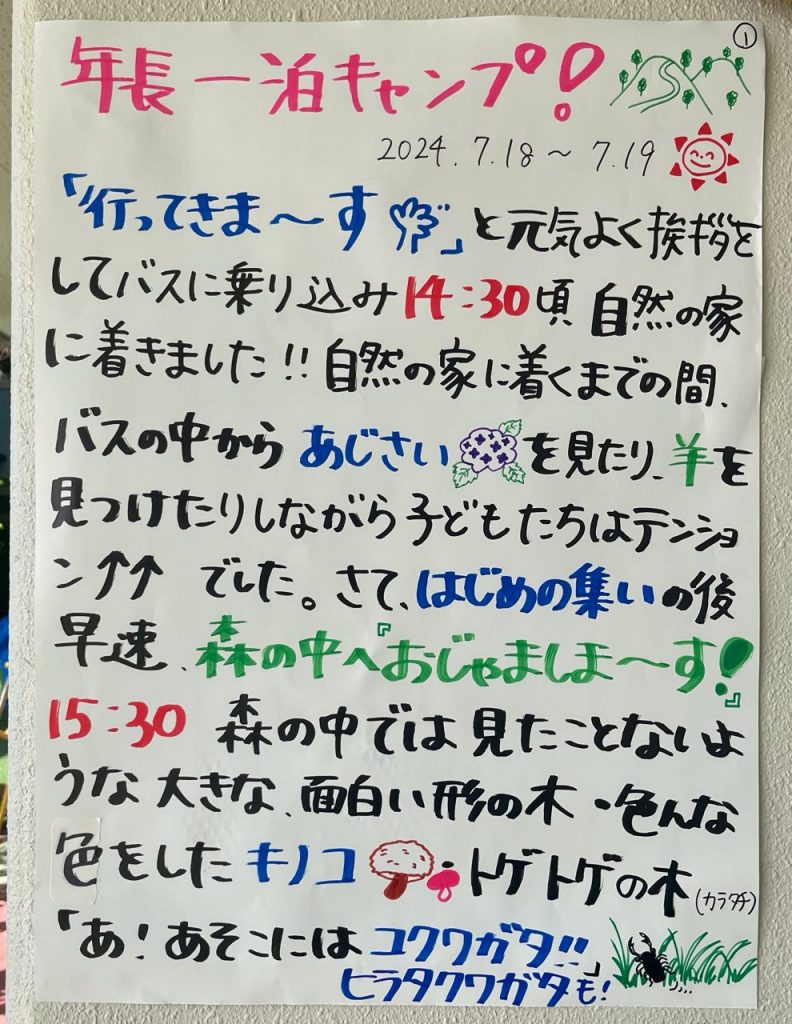 ①
年長一泊キャンプ!
2024.7.18〜7.19
「行ってきま〜す」と元気よく挨拶を
してバスに乗り込み14:30頃 自然の家
に着きました!!自然の家に着くまでの間、
バスの中からあじさいを見たり、羊を
見つけたりしながら子どもたちはテンショ
ン↑↑でした。さて、はじめの集いの後
早速、森の中へ『おじゃましま〜す!』
15:30 森の中では見たことないよ
うな大きな、面白い形の木・色んな
色をしたキノコ・トゲトゲの木(カラタチ)
「あ!あそこにはコクワガタ!!」
ヒラタクワガタも!